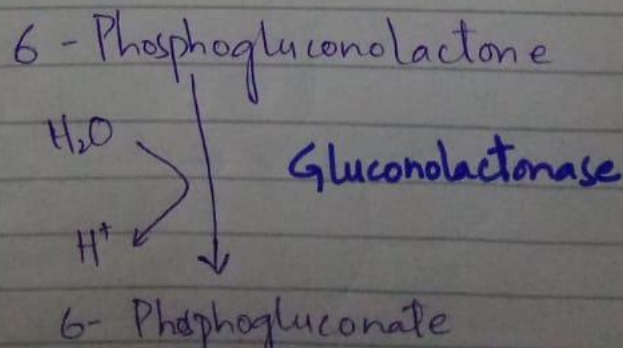 6 - Phosphogluconolactone
H₂O
Gluconolactonase
H⁺
6- Phosphogluconate